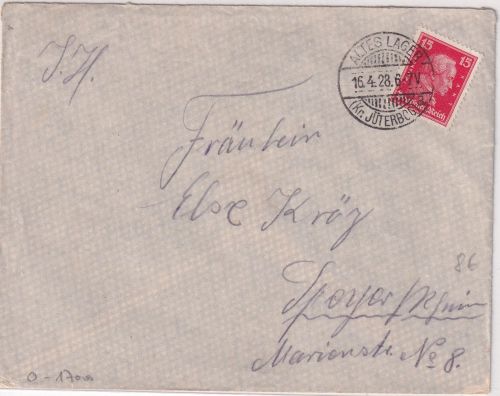 I. H.
ALTES LAGER
16.4.28.6-7V
(Kr. JÜTERBOG)
15 15
Deutsches Reich
Fräulein
Else Kröz
86
Speyer/Rhein
Marienstr. No 8.
0-1700